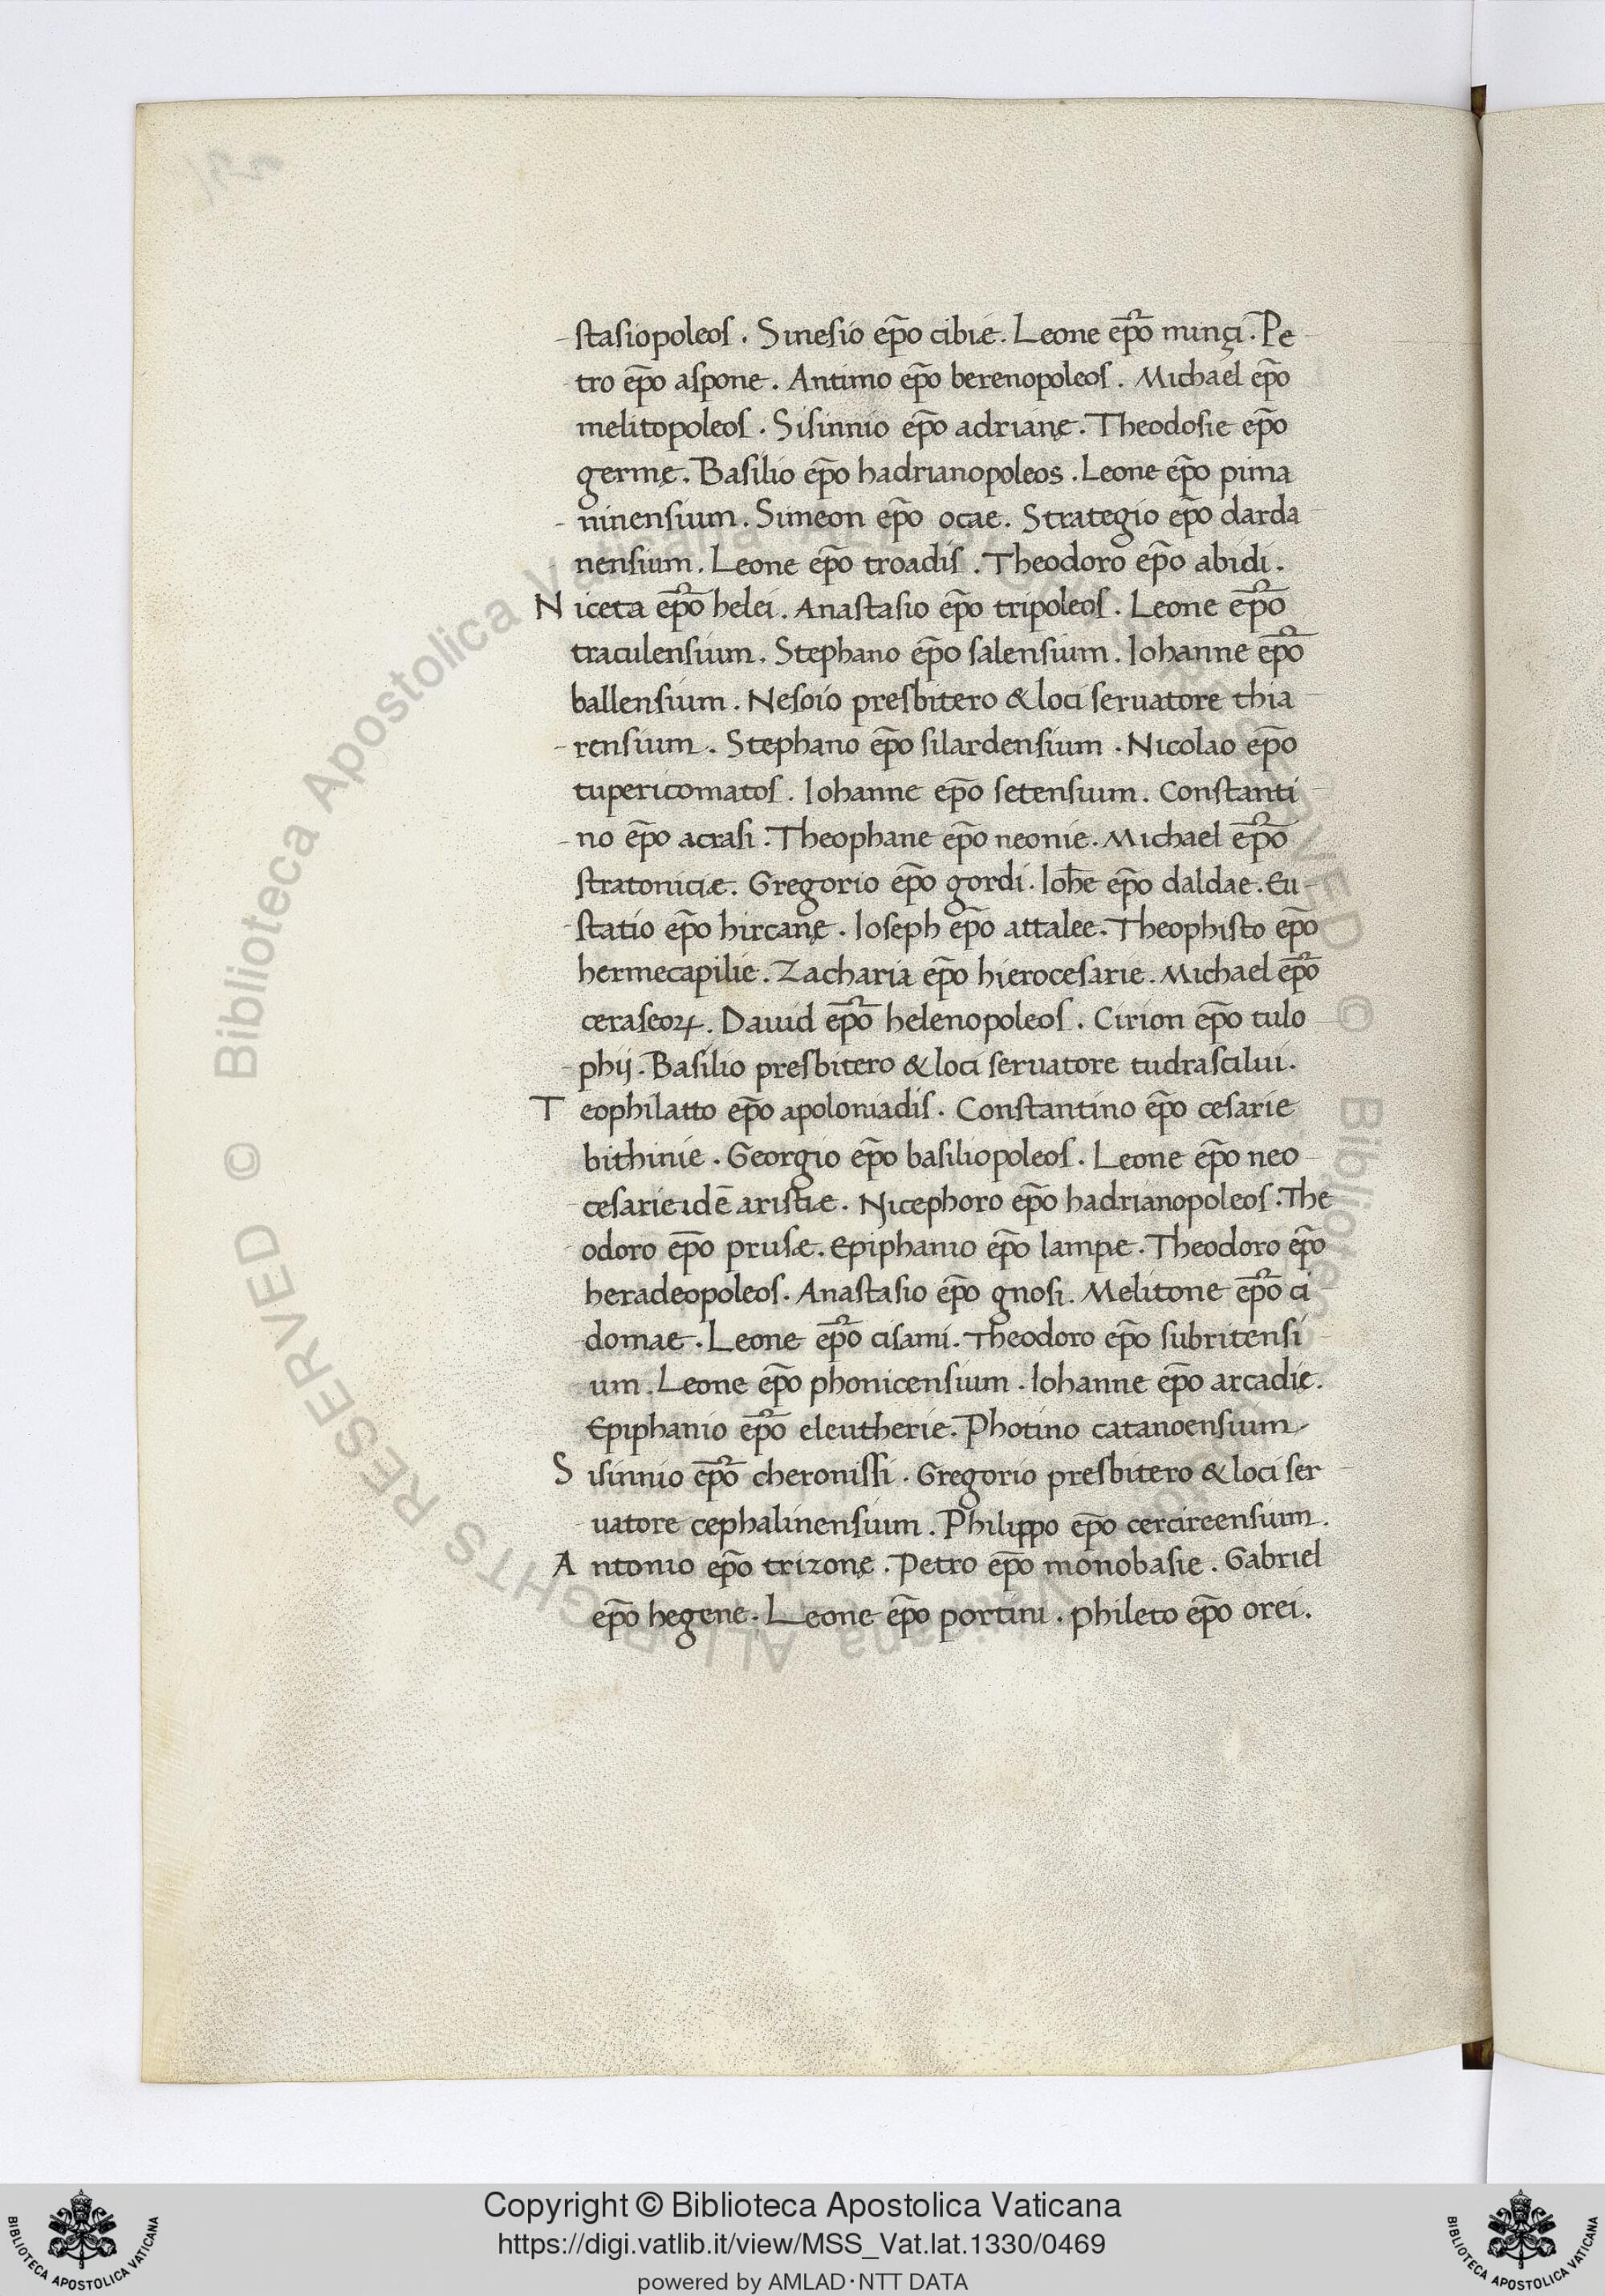 stasiopoleos. Sinesio ep̄o cibiæ. Leone ep̄o minçi. Pe
tro ep̄o aspone. Antimo ep̄o berenopoleos. Michael ep̄o
melitopoleos. Sisinnio ep̄o adrianę. Theodosie ep̄o
germę. Basilio ep̄o hadrianopoleos. Leone ep̄o pima
ninensium. Simeon ep̄o ocae. Strategio ep̄o darda
nensium. Leone ep̄o troadis. Theodoro ep̄o abidi.
Niceta ep̄o helei. Anastasio ep̄o tripoleos. Leone ep̄o
traculensium. Stephano ep̄o salensium. Iohanne ep̄o
ballensium. Nesoio presbitero & loci seruatore thia
rensium. Stephano ep̄o silardensium. Nicolao ep̄o
tupericomatos. Iohanne ep̄o setensium. Constanti
no ep̄o acrasi. Theophane ep̄o neonie. Michael ep̄o
stratoniciæ. Gregorio ep̄o gordi. Ioh̄e ep̄o daldae. Eu
statio ep̄o hircanę. Ioseph ep̄o attalee. Theophisto ep̄o
hermecapilie. Zacharia ep̄o hierocesarie. Michael ep̄o
ceraseoꝝ. Dauid ep̄o helenopoleos. Cirion ep̄o tulo
phij. Basilio presbitero & loci seruatore tudrascilui.
Teophilatto ep̄o apoloniadis. Constantino ep̄o cesarie
bithinie. Georgio ep̄o basiliopoleos. Leone ep̄o neo
cesarie idē aristiæ. Nicephoro ep̄o hadrianopoleos. The
odoro ep̄o prusæ. Epiphanio ep̄o lampe. Theodoro ep̄o
heracleopoleos. Anastasio ep̄o gnosi. Melitone ep̄o ci
domae. Leone ep̄o cisami. Theodoro ep̄o subritensi
um. Leone ep̄o phonicensium. Iohanne ep̄o arcadię.
Epiphanio ep̄o eleutherie. Photino catanoensium
Sisinnio ep̄o cheronissi. Gregorio presbitero & loci ser
uatore cephalinensium. Philippo ep̄o cercireensium.
Antonio ep̄o trizonę. Petro ep̄o monobasie. Gabriel
ep̄o hegene. Leone ep̄o portini. Phileto ep̄o orei.
Copyright © Biblioteca Apostolica Vaticana
https://digi.vatlib.it/view/MSS_Vat.lat.1330/0469
powered by AMLAD·NTT DATA